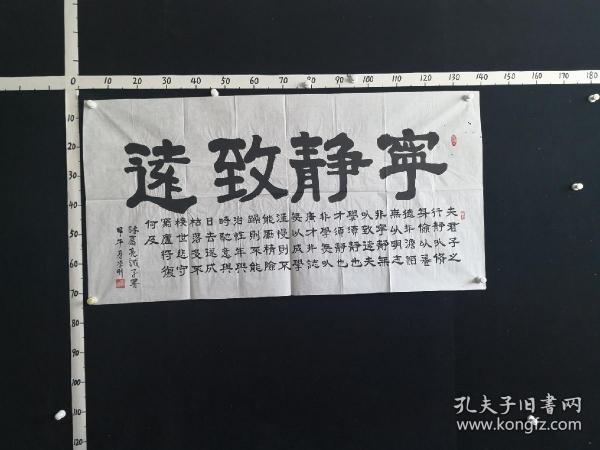 0 10 20 30 40 50 60 70 80 90 100 110 120 130 140 150 160 170 180
10
20
30
40
50
60
70
80
90
100
110
120
寧静致遠
夫君子之
行静以脩
身儉以養
德非澹泊
無以明志
非寧静無
以致遠夫
學須静也
才須學也
非學無以
廣才非志
無以成學
淫慢則不
能勵精險
躁則不能
治性年與
時馳意與
日去遂成
枯落多不
接世悲守
窮廬將復
何及
諸葛亮誡子書
甲午
孔夫子旧書网